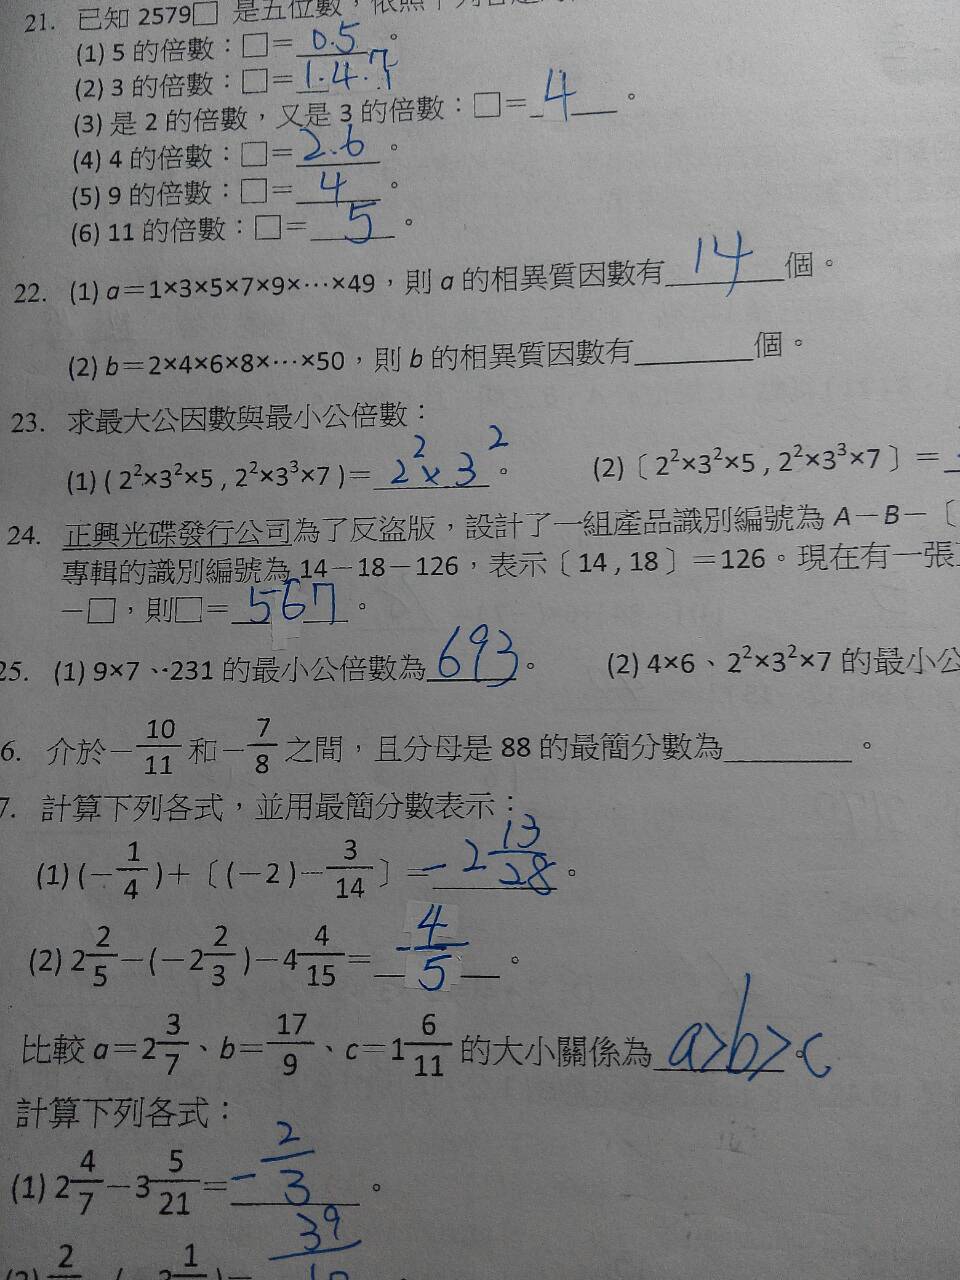 21. 已知 2579□ 是五位數，依照下列各
(1) 5 的倍數：□＝ 0.5 。
(2) 3 的倍數：□＝ 1.4.7 。
(3) 是 2 的倍數，又是 3 的倍數：□＝ 4 。
(4) 4 的倍數：□＝ 2.6 。
(5) 9 的倍數：□＝ 4 。
(6) 11 的倍數：□＝ 5 。
22. (1) a＝1×3×5×7×9×⋯×49，則 a 的相異質因數有 14 個。
(2) b＝2×4×6×8×⋯×50，則 b 的相異質因數有______個。
23. 求最大公因數與最小公倍數：
(1) ( 2²×3²×5 , 2²×3³×7 )＝ 2²×3² 。 (2)〔 2²×3²×5 , 2²×3³×7 〕＝
24. 正興光碟發行公司為了反盜版，設計了一組產品識別編號為 A－B－〔
專輯的識別編號為 14－18－126，表示〔 14 , 18 〕＝126。現在有一張
－□，則□＝ 567 。
25. (1) 9×7、231 的最小公倍數為 693 。 (2) 4×6、2²×3²×7 的最小公
6. 介於－10/11 和－7/8 之間，且分母是 88 的最簡分數為______。
7. 計算下列各式，並用最簡分數表示：
(1) (－1/4)＋〔(－2)－3/14〕＝ －2 13/28 。
(2) 2 2/5－(－2 2/3)－4 4/15＝ －4/5 。
比較 a＝2 3/7、b＝17/9、c＝1 6/11 的大小關係為 a>b>c 。
計算下列各式：
(1) 2 4/7－3 5/21＝ －2/3 。